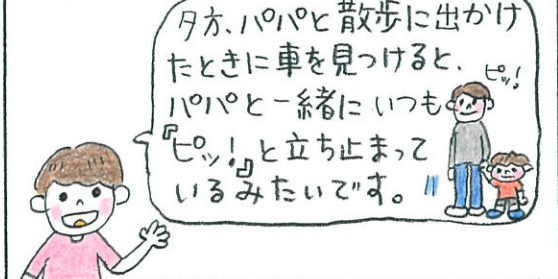 夕方、パパと散歩に出かけ
たときに車を見つけると、
パパと一緒にいつも
『ピッ！』と立ち止まって
いるみたいです。
ピッ！